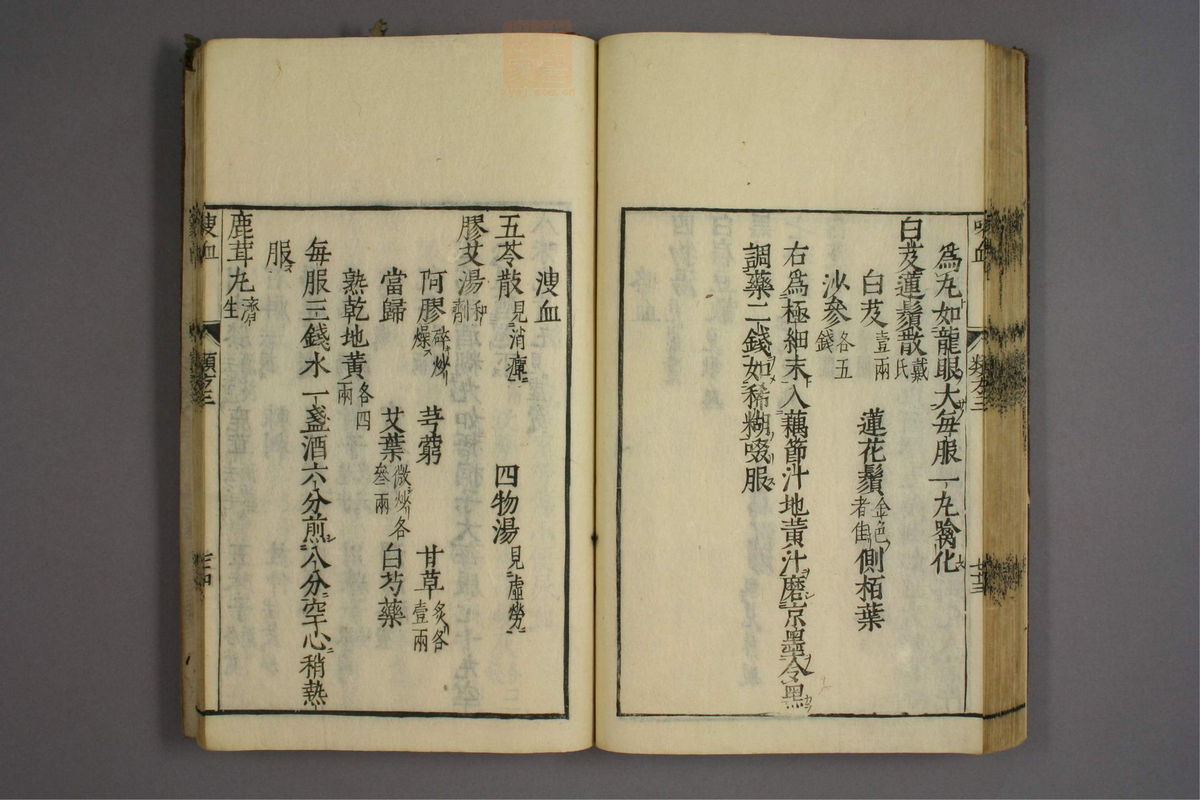 為丸如龍眼大每服一丸噙化
白芨蓮鬚散戴氏
白芨壹兩 蓮花鬚金色者佳 側栢葉
沙參各五錢
右為極細末入藕節汁地黃汁磨京墨令黑
調藥二錢如稀糊啜服
溲血
五苓散見消癉 四物湯見虛勞
膠艾湯和劑
阿膠碎炒燥 芎藭 甘草炙各壹兩
當歸 艾葉微炒各叄兩 白芍藥
熟乾地黃各四兩
每服三錢水一盞酒六分煎八分空心稍熱
服
鹿茸丸濟生
溲血 類方三